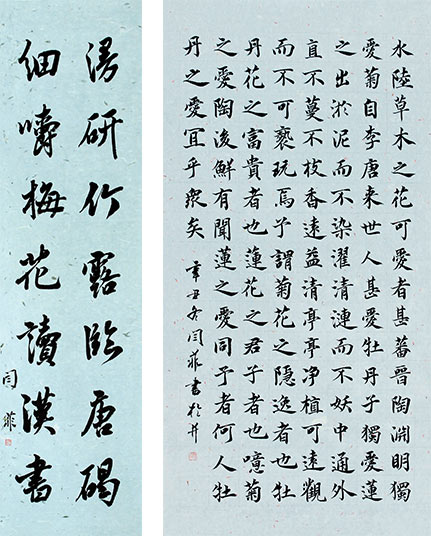 漫研竹露臨唐碣
細嚼梅花讀漢書
闫菲
水陸草木之花可愛者甚蕃晉陶淵明獨
愛菊自李唐来世人甚愛牡丹予獨愛蓮
之出於泥而不染濯清漣而不妖中通外
直不蔓不枝香遠益清亭亭净植可遠觀
而不可褻玩焉予謂菊花之隱逸者也牡
丹花之富貴者也蓮花之君子者也噫菊
之愛陶後鮮有聞蓮之愛同予者何人牡
丹之愛宜乎衆矣 辛丑冬闫菲書於并